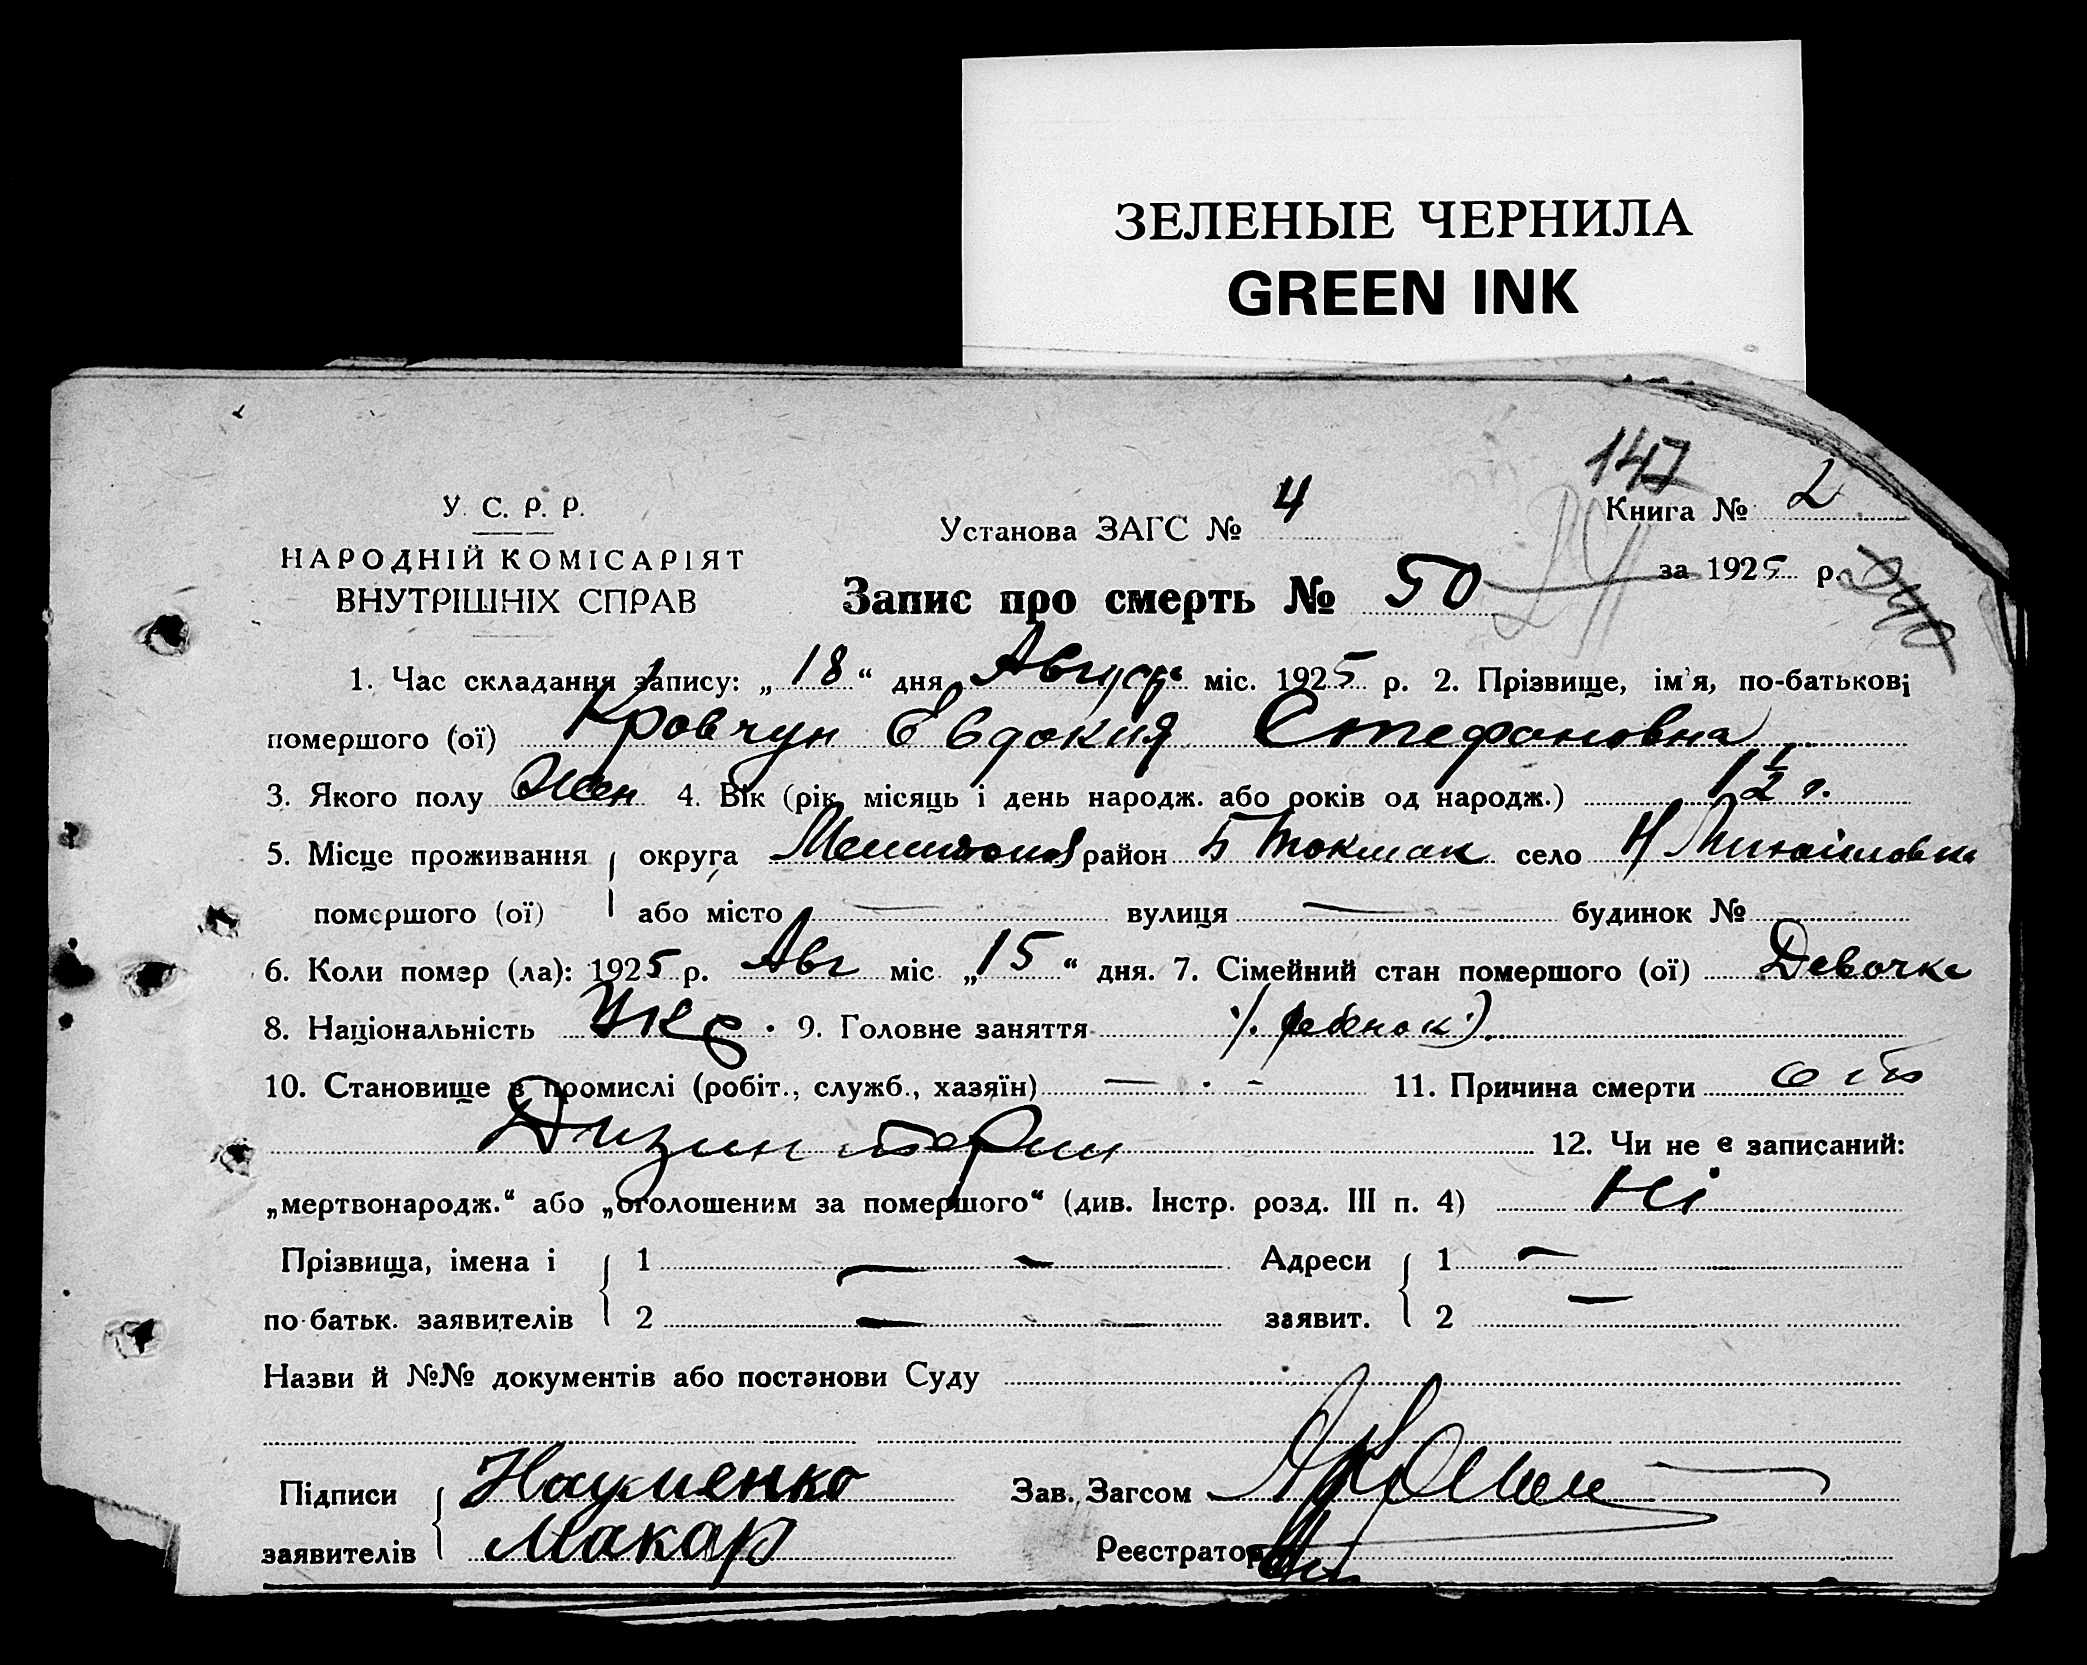 ЗЕЛЕНЫЕ ЧЕРНИЛА
GREEN INK
147
У. С. Р. Р.
Установа ЗАГС № 4
Книга № 2
НАРОДНІЙ КОМІСАРІЯТ
за 1925 р.
ВНУТРІШНІХ СПРАВ
Запис про смерть № 50
1. Час складання запису: „18“ дня Август міс. 1925 р. 2. Прізвище, ім'я, по-батькові
помершого (ої) Кровчун Евдокия Стефановна
3. Якого полу Жен 4. Вік (рік, місяць і день народж. або років од народж.) 1 1/2 г.
5. Місце проживання округа район Б Токмак село Н Михайловка
помершого (ої) або місто — вулиця — будинок №
6. Коли помер (ла): 1925 р. Авг міс „15“ дня. 7. Сімейний стан помершого (ої) Девочка
8. Національність Укр. 9. Головне заняття (ребенок)
10. Становище в промислі (робіт., служб., хазяїн) — · - 11. Причина смерти от
Дизинтерии 12. Чи не є записаний:
„мертвонародж.“ або „оголошеним за помершого“ (див. Інстр. розд. III п. 4) Ні
Прізвища, імена і 1 — - Адреси 1 —
по батьк. заявителів 2 — - заявит. 2 —
Назви й №№ документів або постанови Суду
Підписи Науменко Зав. Загсом
заявителів Макар Реєстратор